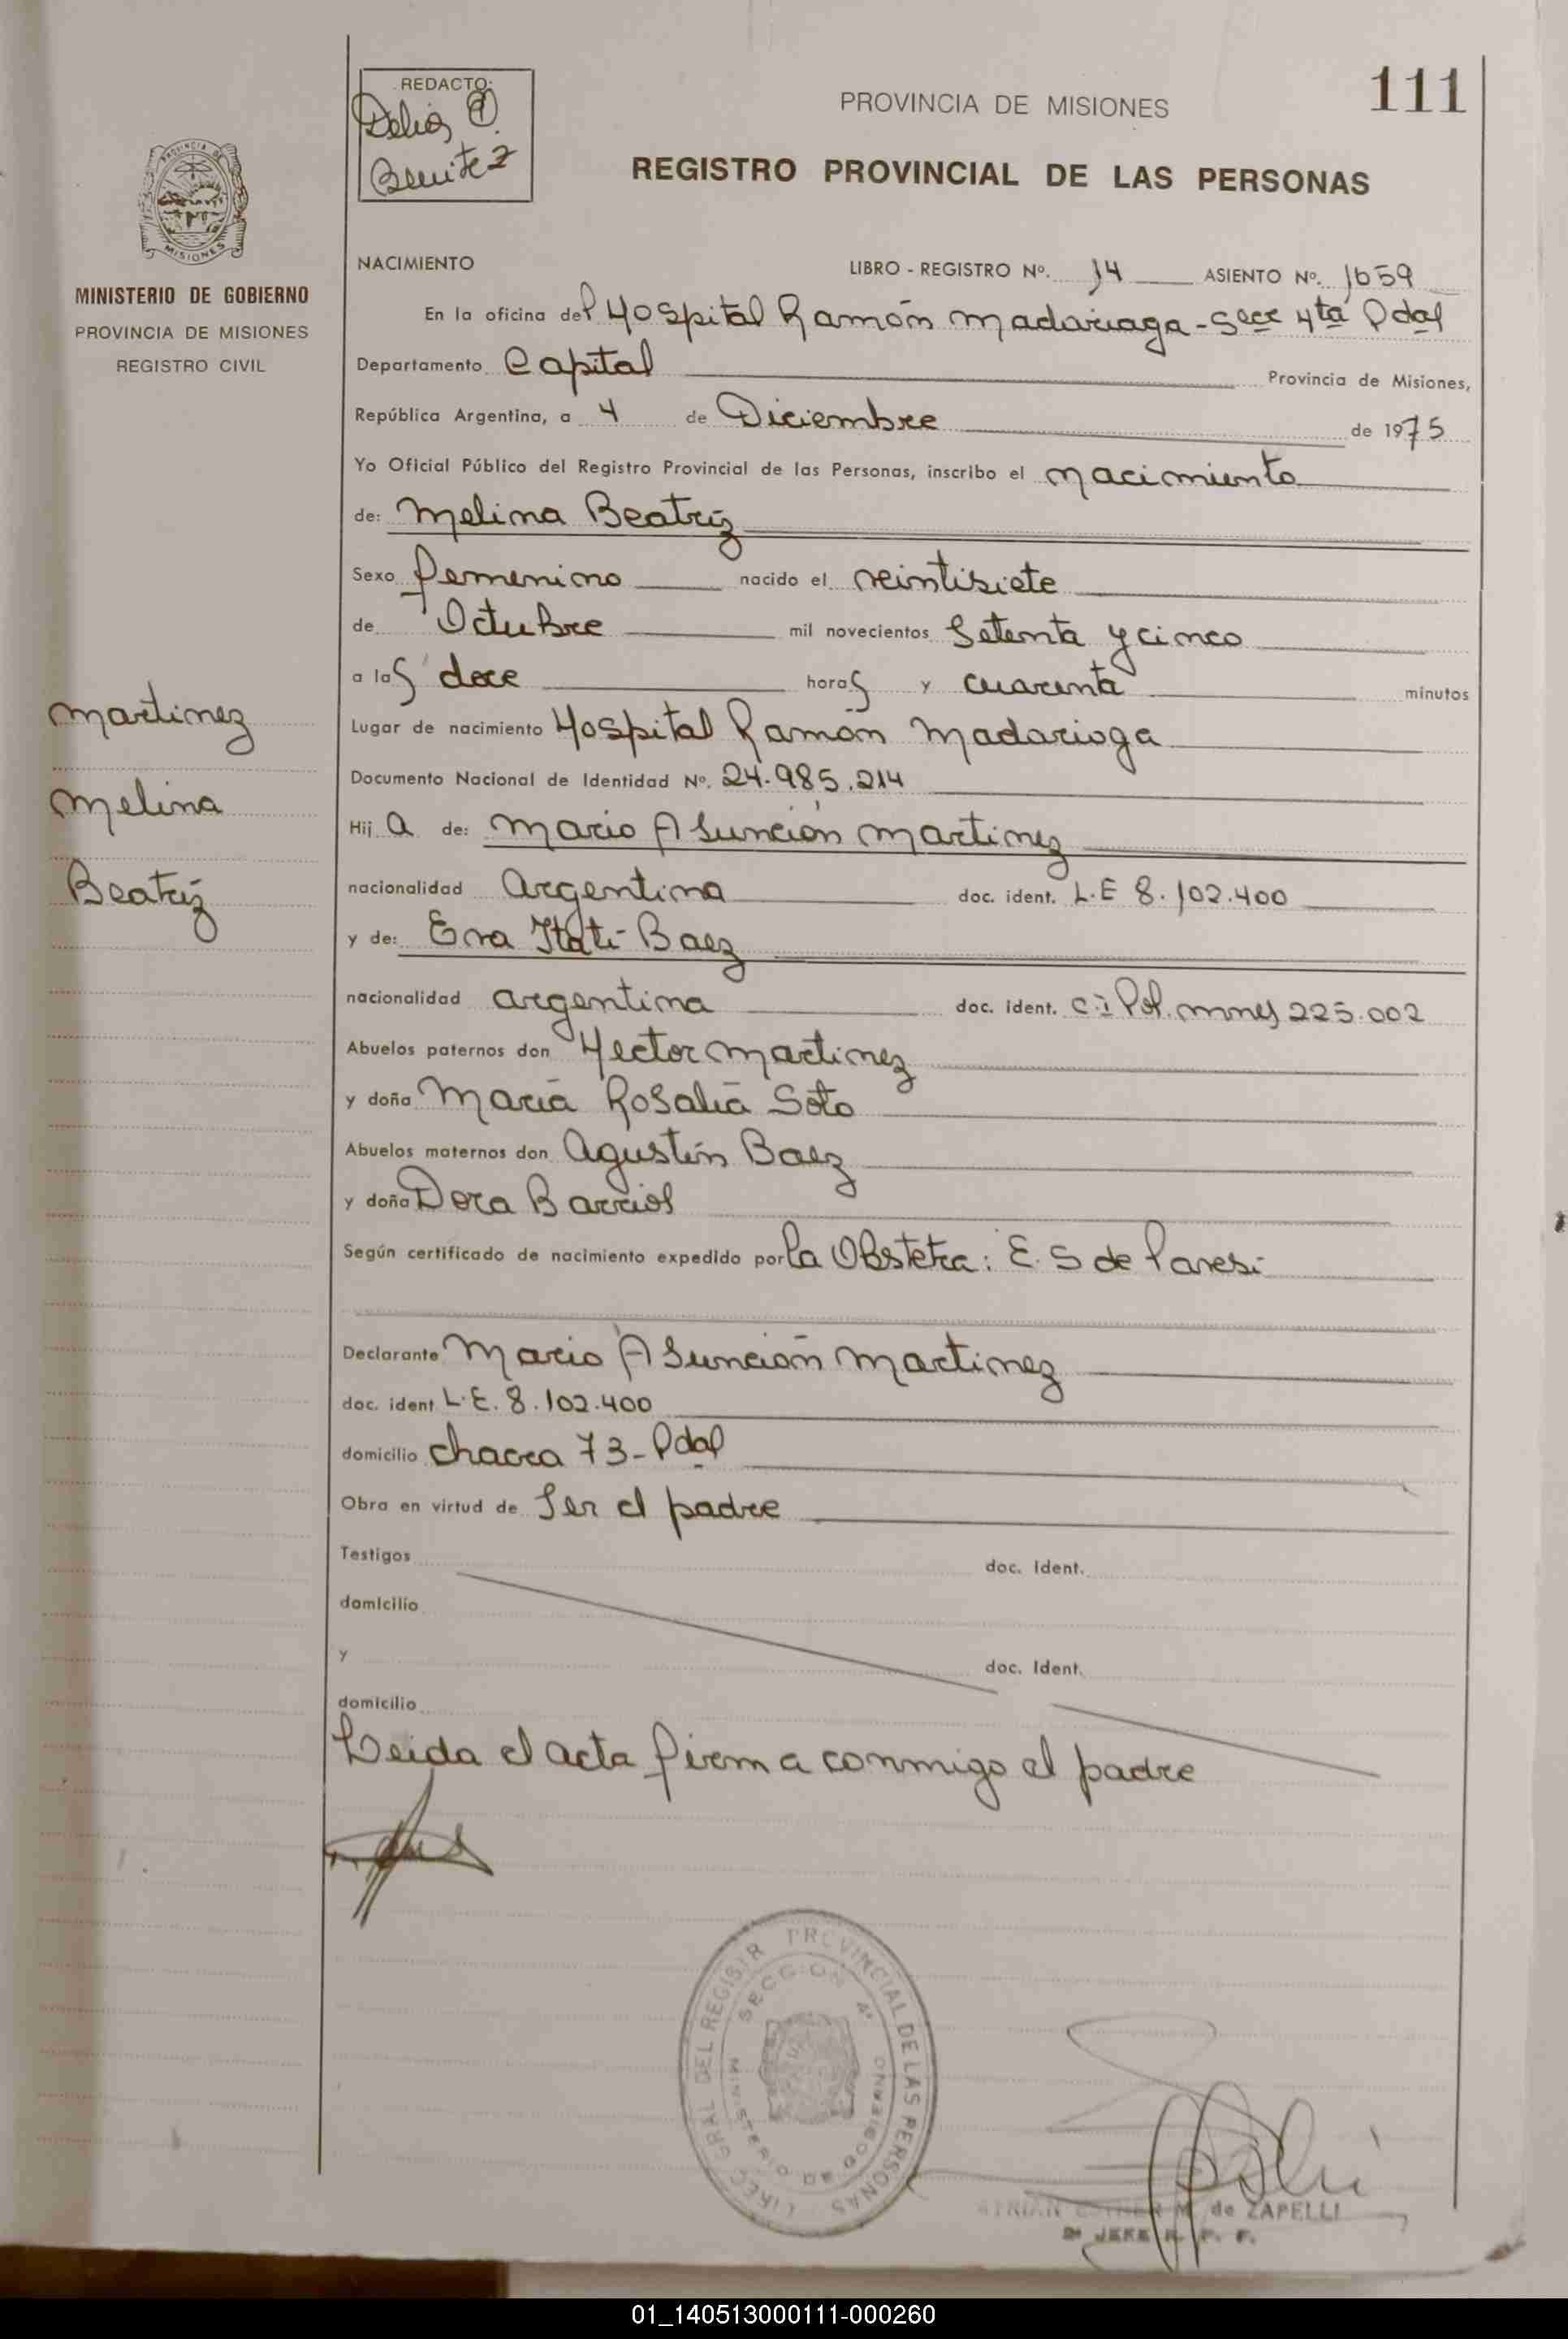 REDACTO:
Delia
Benitez
PROVINCIA DE MISIONES
111
REGISTRO PROVINCIAL DE LAS PERSONAS
PROVINCIA DE
MISIONES
MINISTERIO DE GOBIERNO
PROVINCIA DE MISIONES
REGISTRO CIVIL
NACIMIENTO
LIBRO - REGISTRO Nº. 14 ASIENTO Nº. 1659
En la oficina del Hospital Ramón Madariaga - Secc 4ta Pdas
Departamento Capital Provincia de Misiones,
República Argentina, a 4 de Diciembre de 1975
Yo Oficial Público del Registro Provincial de las Personas, inscribo el nacimiento
de: Melina Beatriz
Sexo femenino nacido el veintisiete
de Octubre mil novecientos Setenta y cinco
a las doce horas y cuarenta minutos
Martinez
Lugar de nacimiento Hospital Ramón Madariaga
Documento Nacional de Identidad Nº. 24.985.214
Melina
Hij a de: Mario Asunción Martinez
Beatriz
nacionalidad Argentina doc. ident. L.E 8.102.400
y de: Eva Itatí Baez
nacionalidad argentina doc. ident. C.I Pol. mnes 225.002
Abuelos paternos don Hector Martinez
y doña María Rosalía Soto
Abuelos maternos don Agustín Baez
y doña Dora Barrios
Según certificado de nacimiento expedido por la Obstetra: E. S de
Declarante Mario Asunción Martinez
doc. ident L.E. 8.102.400
domicilio chacra 73 - Pdas
Obra en virtud de Ser el padre
Testigos doc. Ident.
domicilio
y doc. Ident.
domicilio
Leida el acta firma conmigo el padre
DIREC. GRAL DEL REGISTR PROVINCIAL DE LAS PERSONAS
SECCION 4ª
MINISTERIO DE GOBIERNO
de ZAPELLI
JEFE R. P. P.
01_140513000111-000260